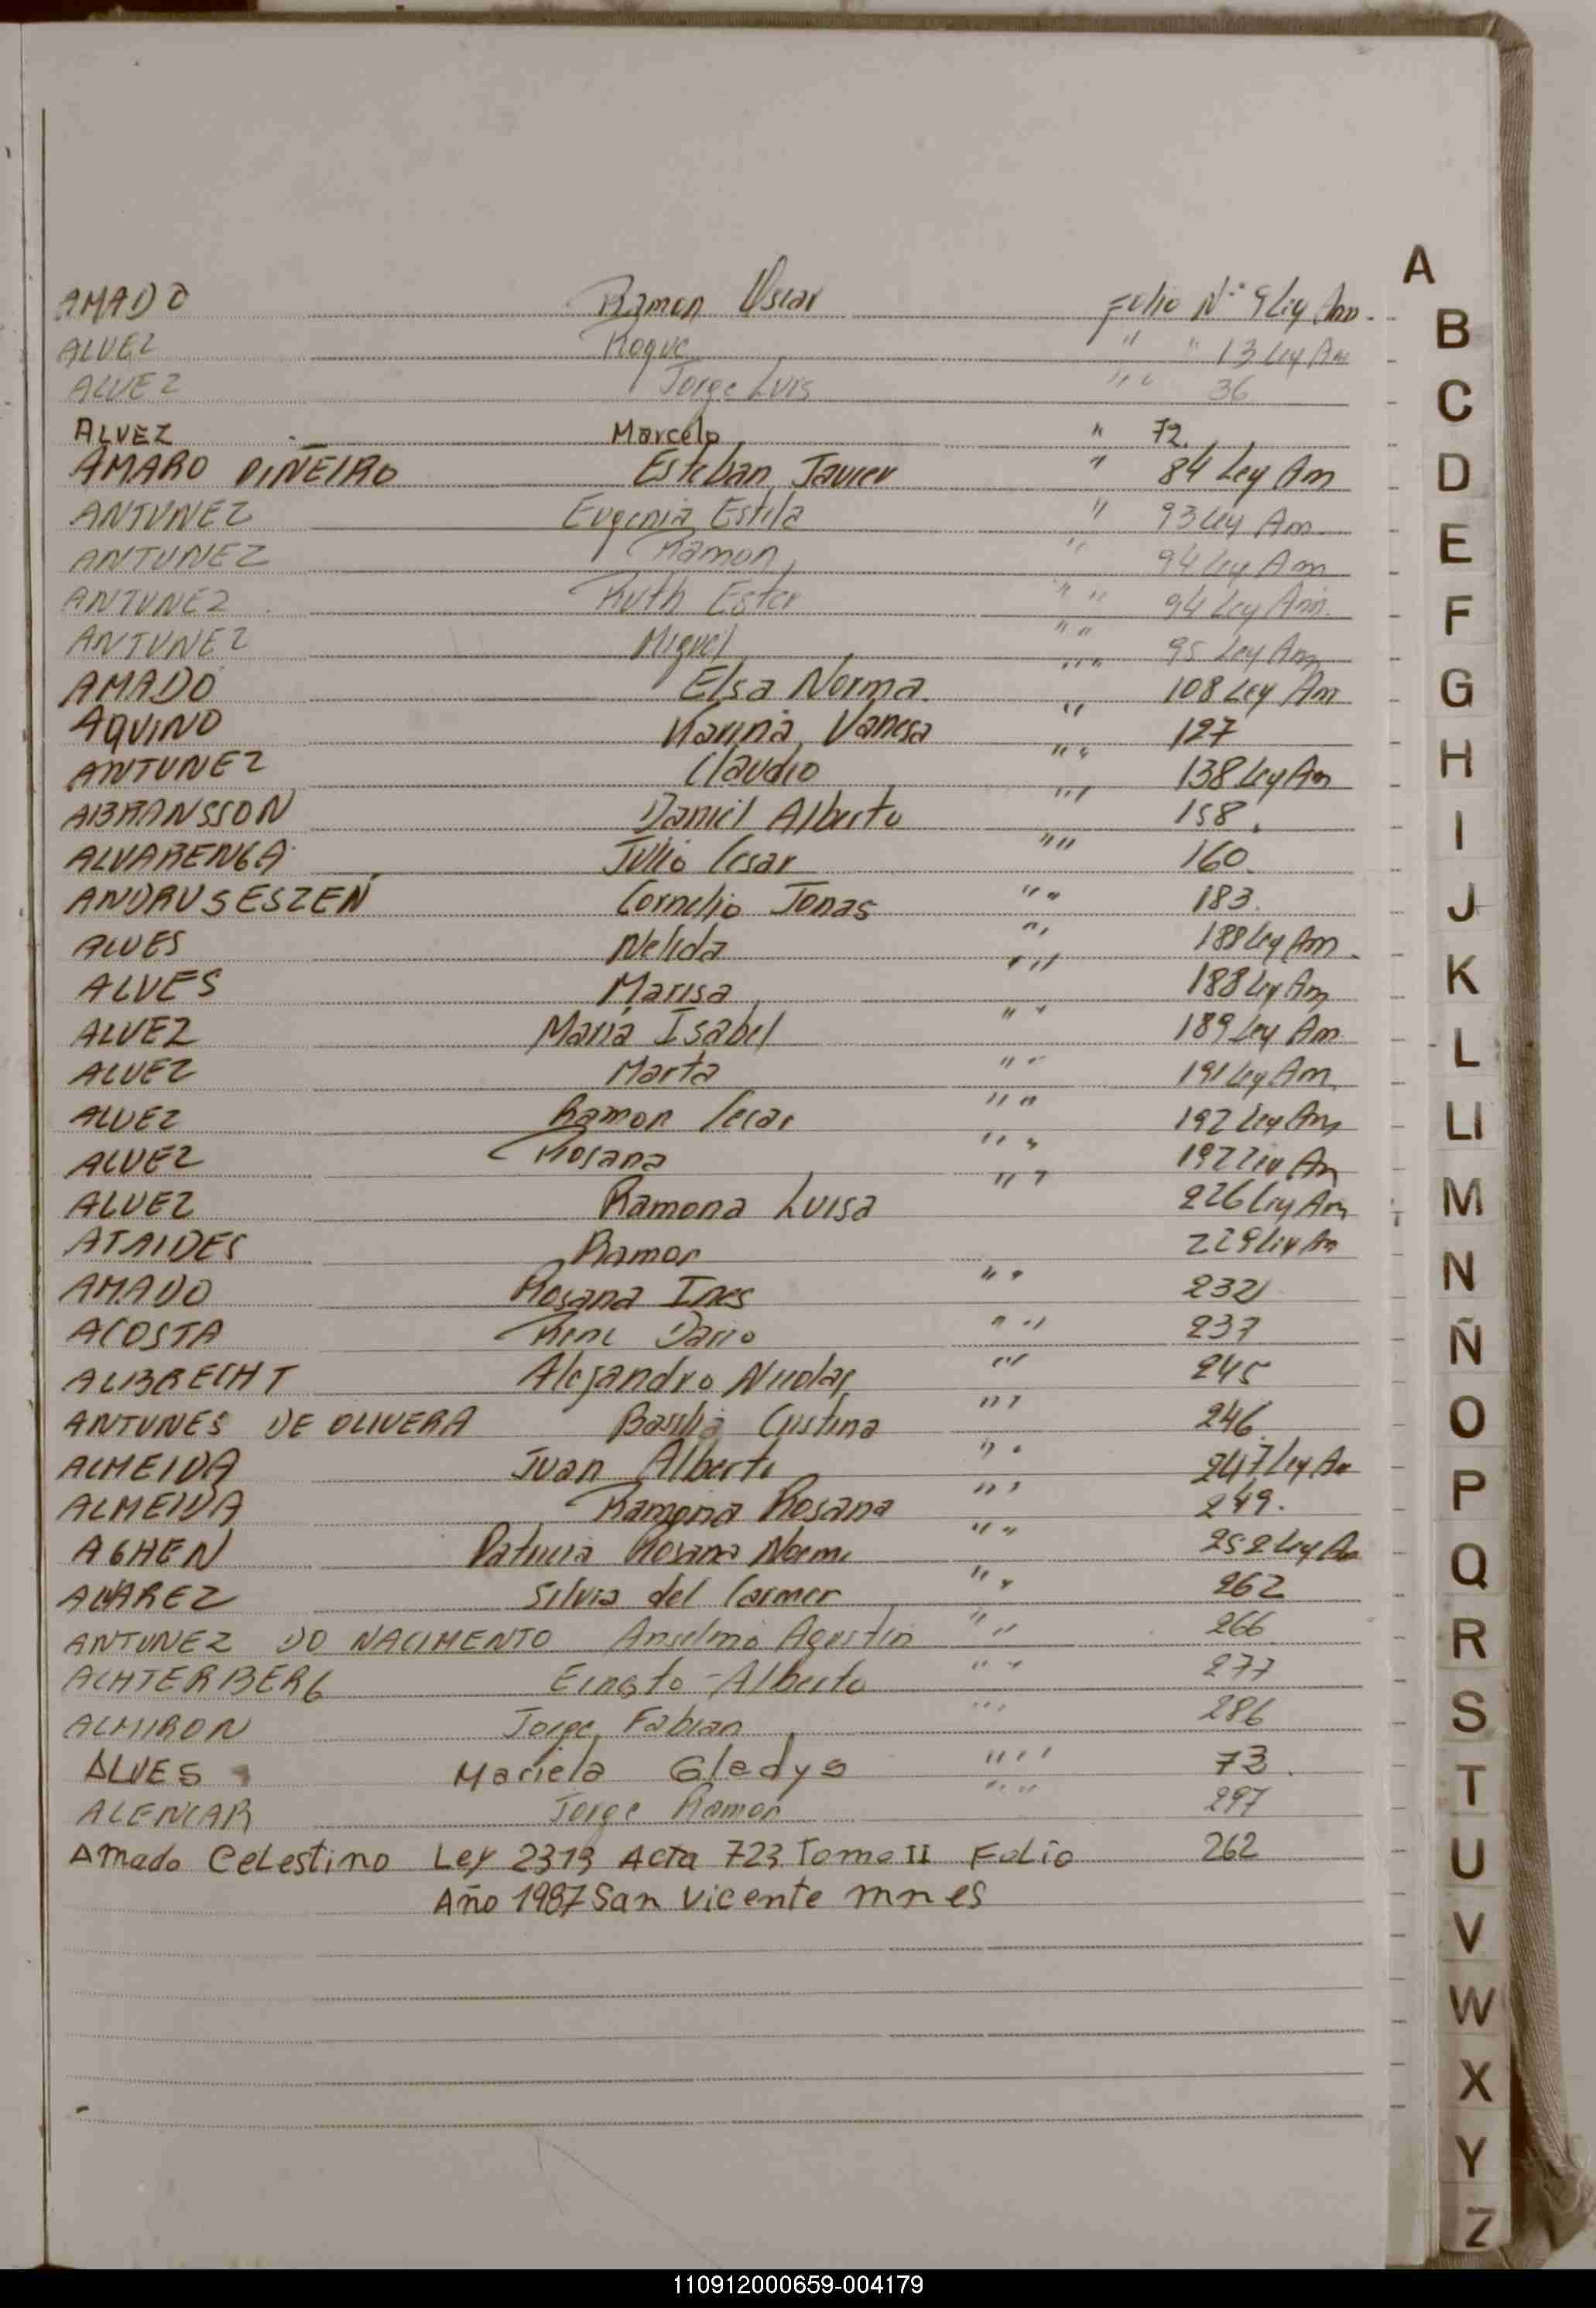 A
AMADO Ramon Oscar Folio Nº 9 Ley Am.
ALVEZ Roque " " 13 Ley Am
ALVEZ Jorge Luis " " 36
ALVEZ Marcelo " 72.
AMARO PIÑEIRO Esteban Javier " 84 Ley Am
ANTUNEZ Eugenia Estela " 93 Ley Am
ANTUNEZ Ramon " 94 Ley Am
ANTUNEZ Ruth Ester " " 94 Ley Am.
ANTUNEZ Miguel " " 95 Ley Am
AMADO Elsa Norma. " " 108 Ley Am
AQUINO Karina Vanesa " 127
ANTUNEZ Claudio " " 138 Ley Am
ABRANSSON Daniel Alberto " " 158.
ALVARENGA Julio Cesar " " 160.
ANDRUSESZEN Cornelio Jonas " " 183.
ALVES Nelida " " 188 Ley Am.
ALVES Marisa " " 188 Ley Am
ALVEZ Maria Isabel " " 189 Ley Am
ALVEZ Marta " " 191 Ley Am.
ALVEZ Ramon Cesar " " 192 Ley Am
ALVEZ Rosana " " 192 Ley Am
ALVEZ Ramona Luisa " " 226 Ley Am
ATAIDES Ramon 229 Ley Am
AMADO Rosana Ines " " 232
ACOSTA Rene Dario " " 237
ALBRECHT Alejandro Nicolas " " 245
ANTUNES DE OLIVERA Basilia Cristina " " 246.
ALMEIDA Juan Alberto " " 247 Ley Am
ALMEIDA Ramona Rosana " " 249.
AGHEN Patricia Rosana Noemi " " 252 Ley Am
ALVAREZ Silvia del Carmen " " 262
ANTUNEZ DO NACIMENTO Anselmo Agustin " " 266
ACHTERBERG Ernesto Alberto " " 277
ALMIRON Jorge Fabian " " 286
ALVES Mariela Gladys " " 73.
ALENCAR Jorge Ramon " " 297
Amado Celestino Ley 2313 Acta 723 Tomo II Folio 262
Año 1987 San Vicente mnes
B
C
D
E
F
G
H
I
J
K
L
Ll
M
N
Ñ
O
P
Q
R
S
T
U
V
W
X
Y
Z
110912000659-004179